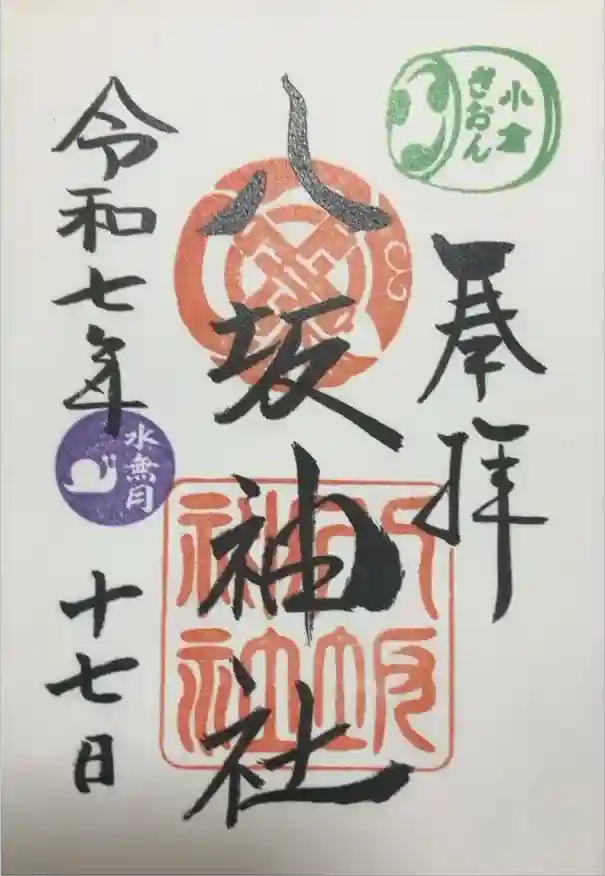 小倉
ぎおん
奉拝
八坂神社
八坂
神社
令和七年
水無月
十七日